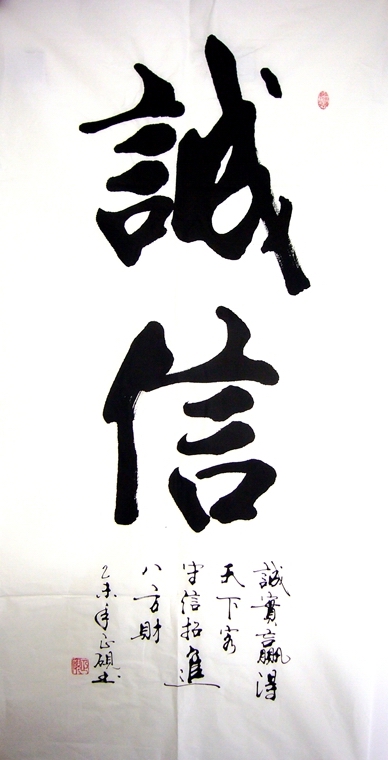 誠信
誠實贏得
天下客
守信招進
八方財
乙未年正硯書